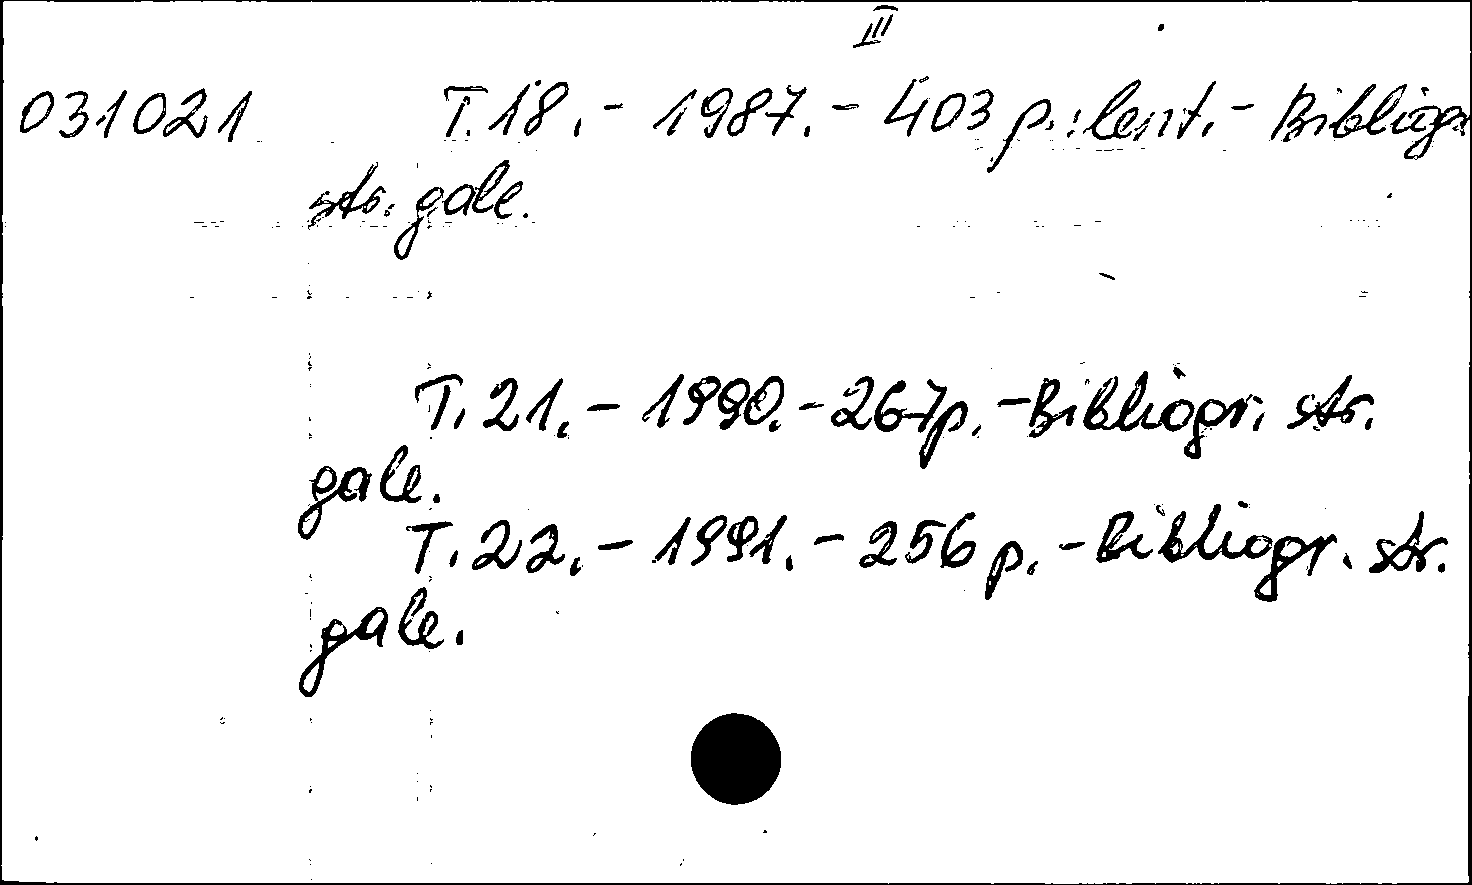 III
031021 T. 18. - 1987. - 403 p.: lent. - Bibliogr.
str. gale.
T. 21. - 1990. - 267 p. - Bibliogr. str.
gale.
T. 22. - 1991. - 256 p. - Bibliogr. str.
gale.